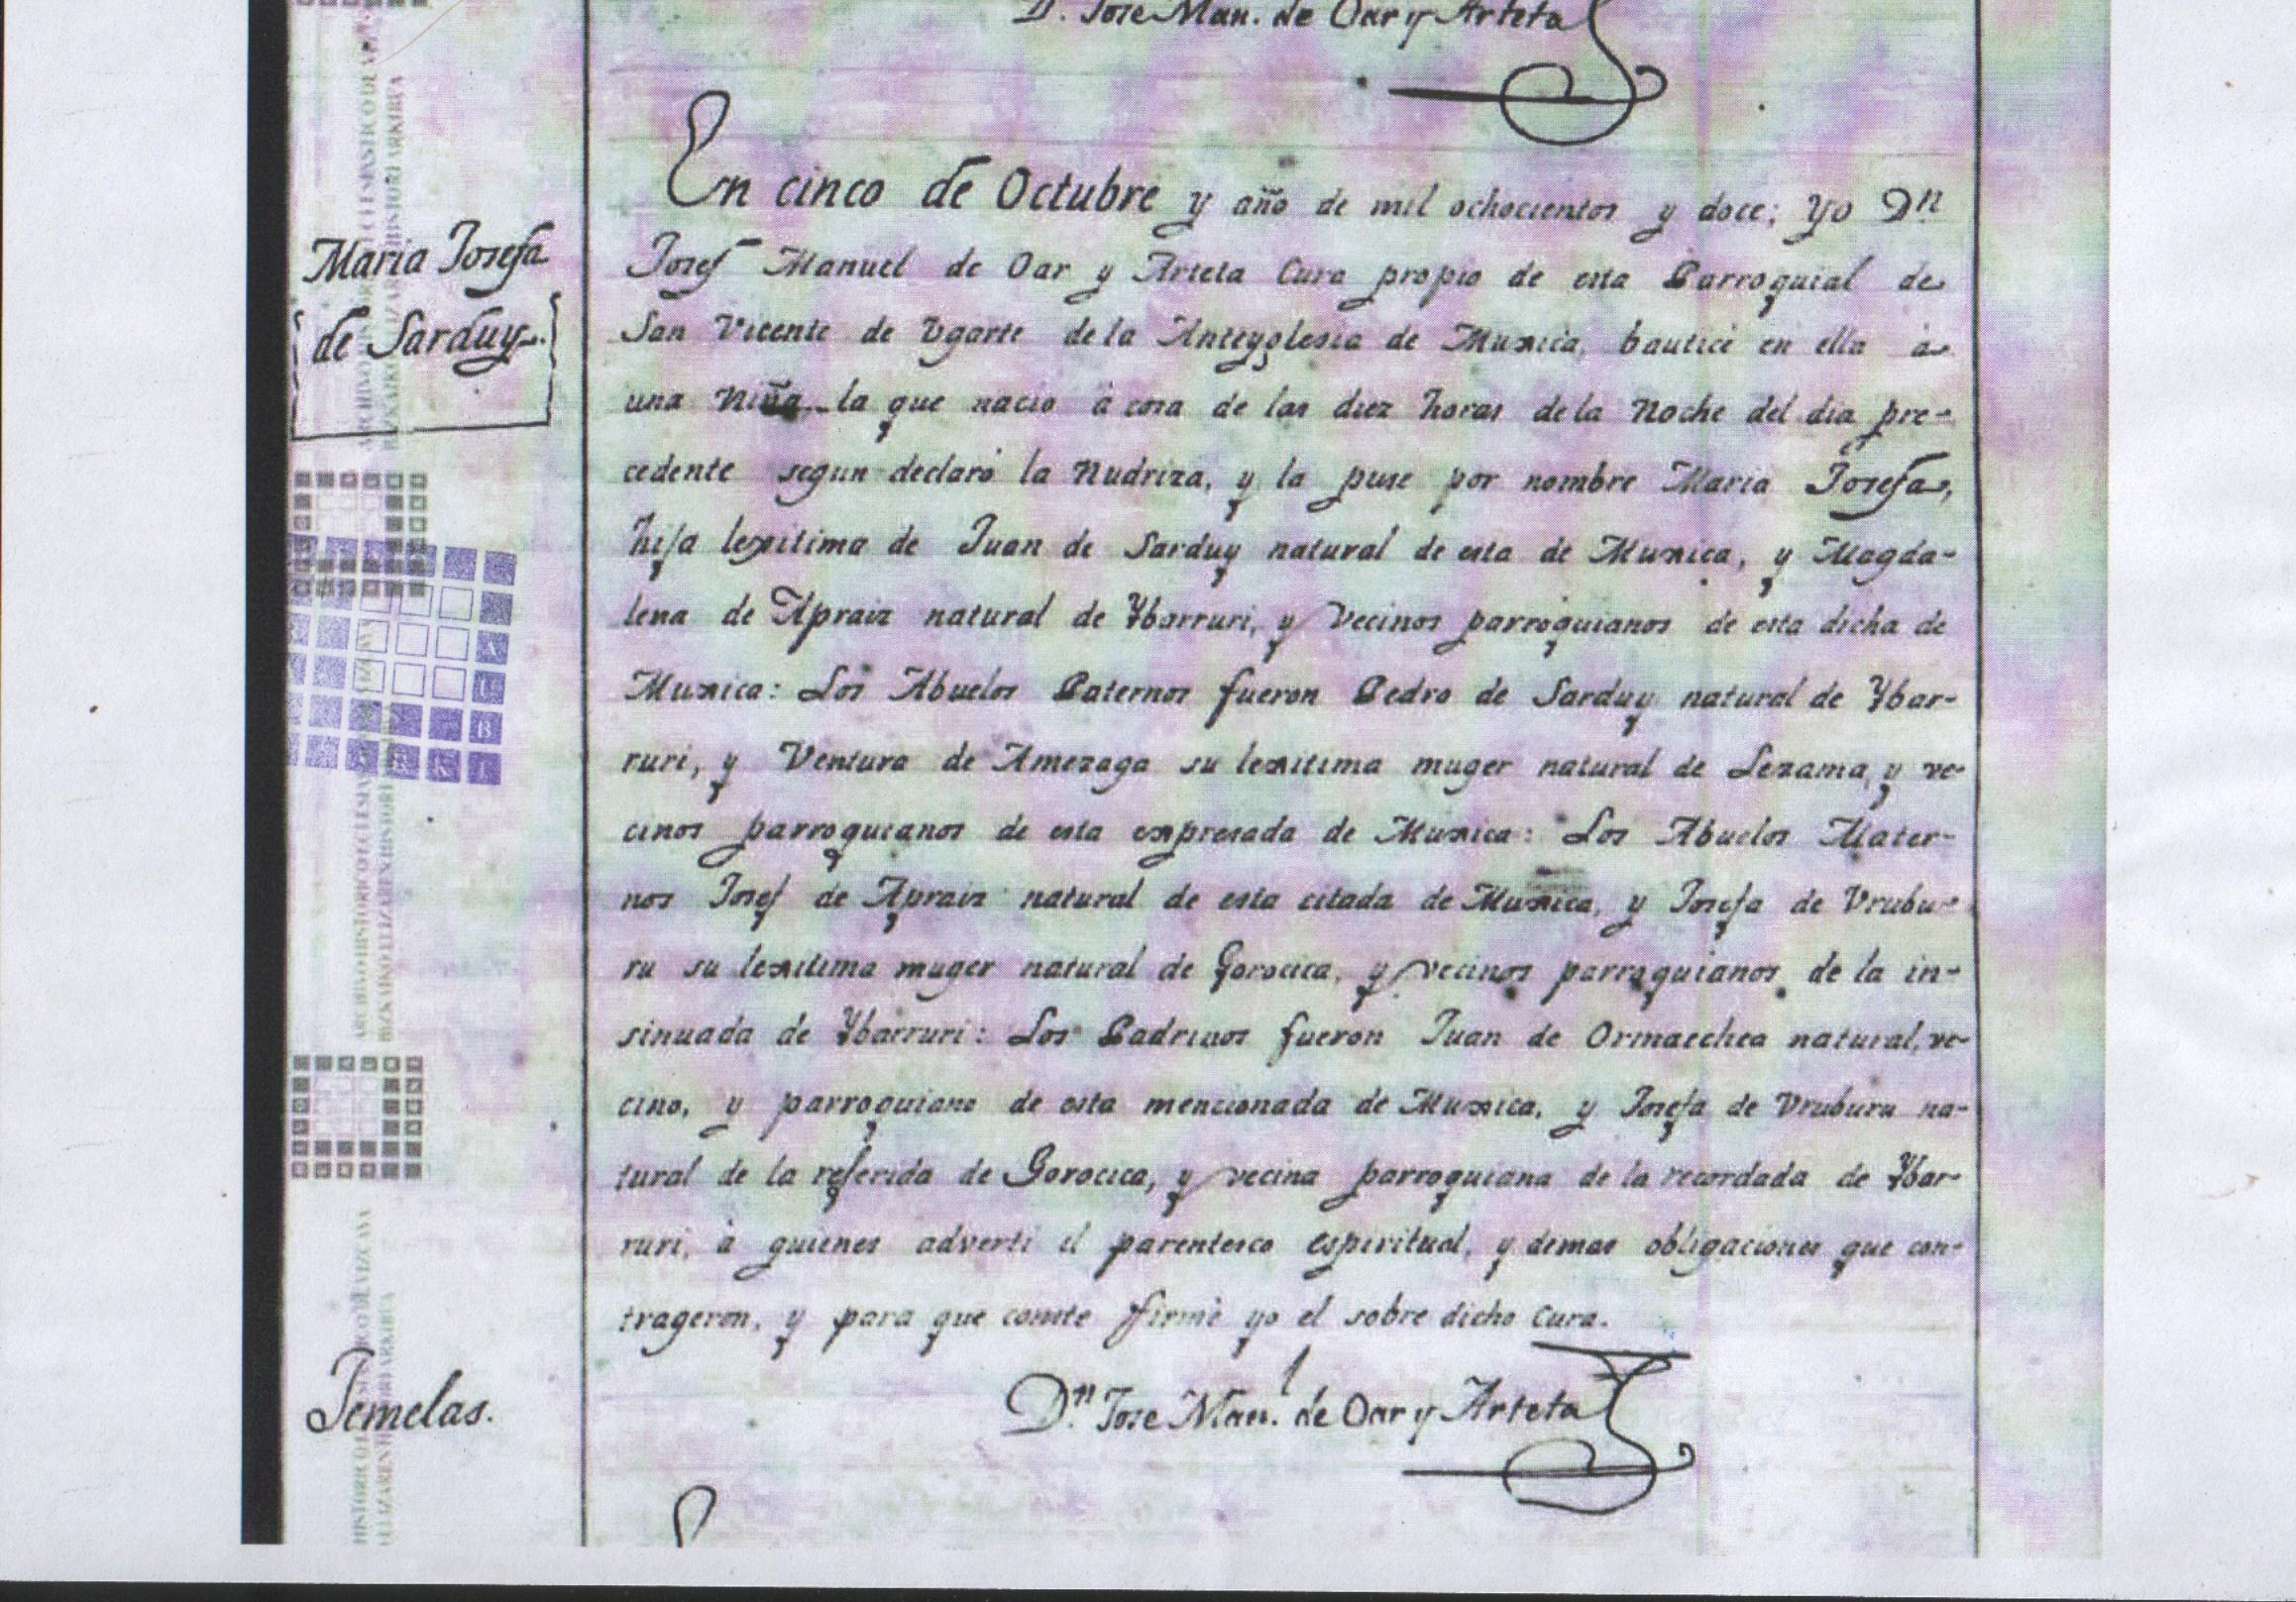 D. Jose Man. de Oar y Arteta
En cinco de Octubre y año de mil ochocientos y doce; yo Dn
Maria Josefa
de Sarduy.
Josef Manuel de Oar y Arteta Cura propio de esta Parroquial de
San Vicente de Vgarte de la Anteyglesia de Muxica, bauticé en ella à
una Niña la que nacio à cosa de las diez horas de la Noche del dia pre-
cedente segun declaró la Nudriza, y la puse por nombre Maria Josefa,
hija lexitima de Juan de Sarduy natural de esta de Muxica, y Magda-
lena de Apraiz natural de Ybarruri, y vecinos parroquianos de esta dicha de
Muxica: Los Abuelos Paternos fueron Pedro de Sarduy natural de Ybar-
ruri, y Ventura de Amezaga su lexitima muger natural de Lezama, y ve-
cinos parroquianos de esta expresada de Muxica: Los Abuelos Mater-
nos Josef de Apraiz natural de esta citada de Muxica, y Josefa de Vrubu-
ru su lexitima muger natural de Gorocica, y vecinos parroquianos de la in-
sinuada de Ybarruri: Los Padrinos fueron Juan de Ormaechea natural, ve-
cino, y parroquiano de esta mencionada de Muxica, y Josefa de Vruburu na-
tural de la referida de Gorocica, y vecina parroquiana de la recordada de Ybar-
ruri, à quienes adverti el parentesco espiritual, y demas obligaciones que con-
trageron, y para que conste firmé yo el sobre dicho Cura.
Dn. Jose Man.l de Oar y Arteta
Jemelas.